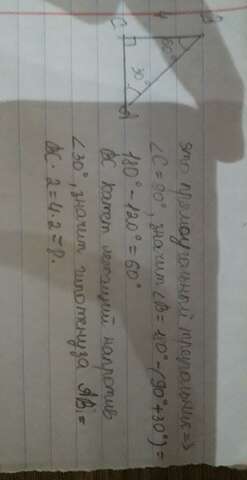 C 4 B
60°
30°
A
это прямоугольный треугольник =>
∠C = 90°, значит ∠B = 180° - (90° + 30°) =
180° - 120° = 60°
BC катет лежащий напротив
∠30°, значит гипотенуза AB =
BC · 2 = 4 · 2 = 8.